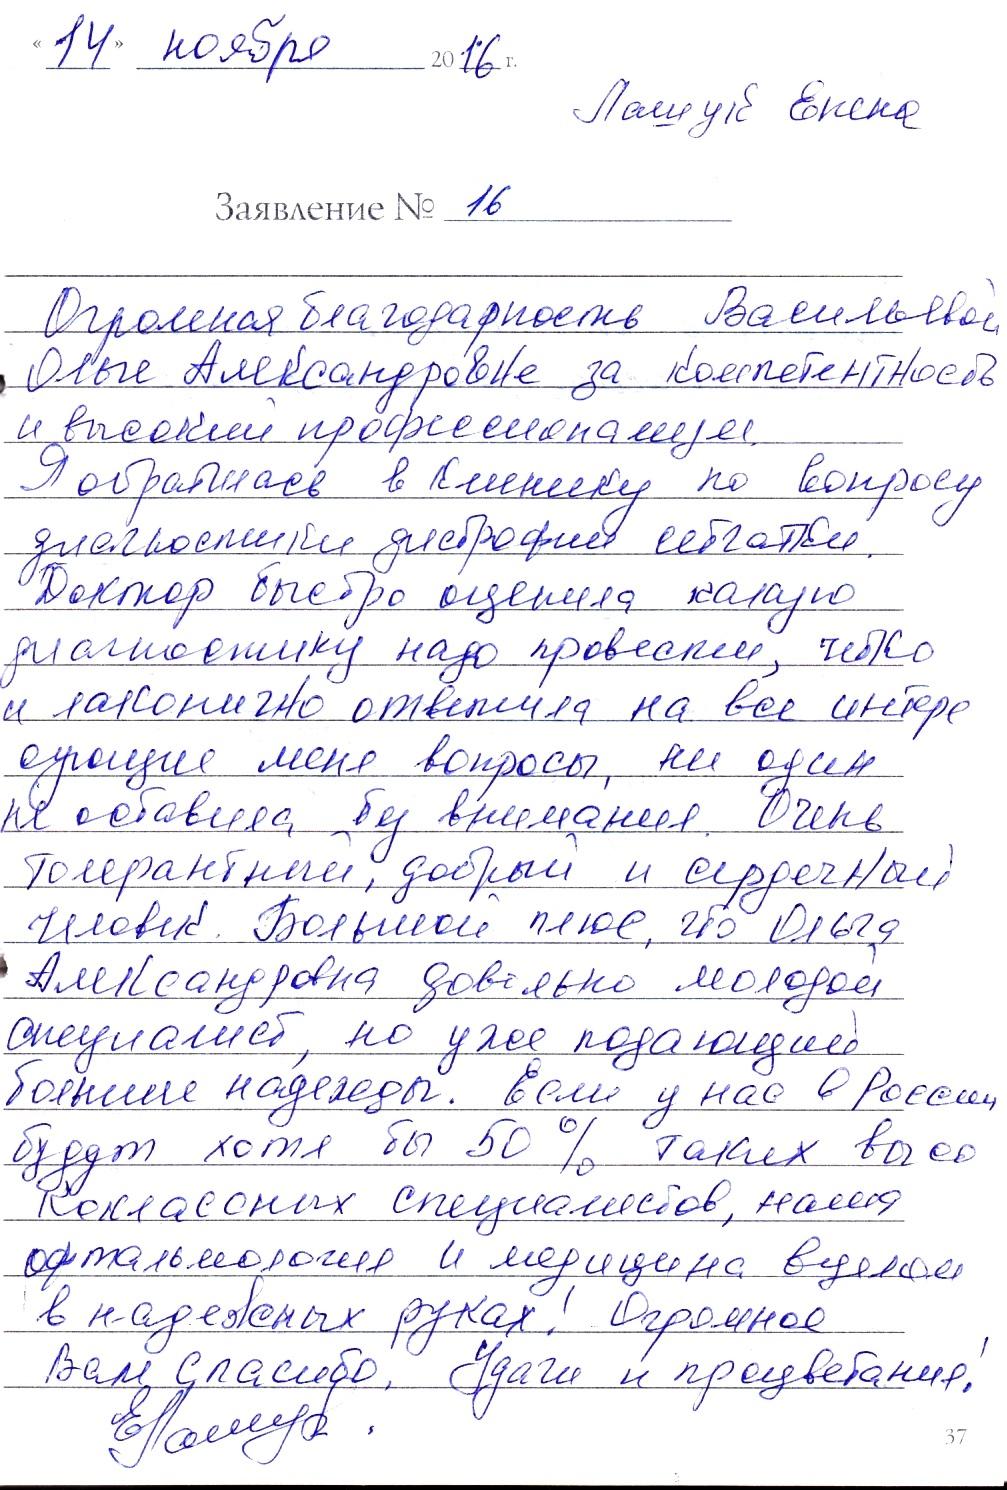 « 14 » ноября 2016 г.
Лащук Елена
Заявление № 16
Огромная благодарность Васильевой
Ольге Александровне за компетентность
и высокий профессионализм.
Я обратилась в клинику по вопросу
диагностики дистрофии сетчатки.
Доктор быстро оценила какую
диагностику надо провести, четко
и лаконично ответила на все интере
сующие меня вопросы, ни один
не оставила без внимания. Очень
толерантный, добрый и сердечный
человек. Большой плюс, что Ольга
Александровна довольно молодой
специалист, но уже подающий
большие надежды. Если у нас в России
будет хотя бы 50 % таких высо
коклассных специалистов, наша
офтальмология и медицина вцелом
в надежных руках! Огромное
Вам спасибо. Удачи и процветания!
37